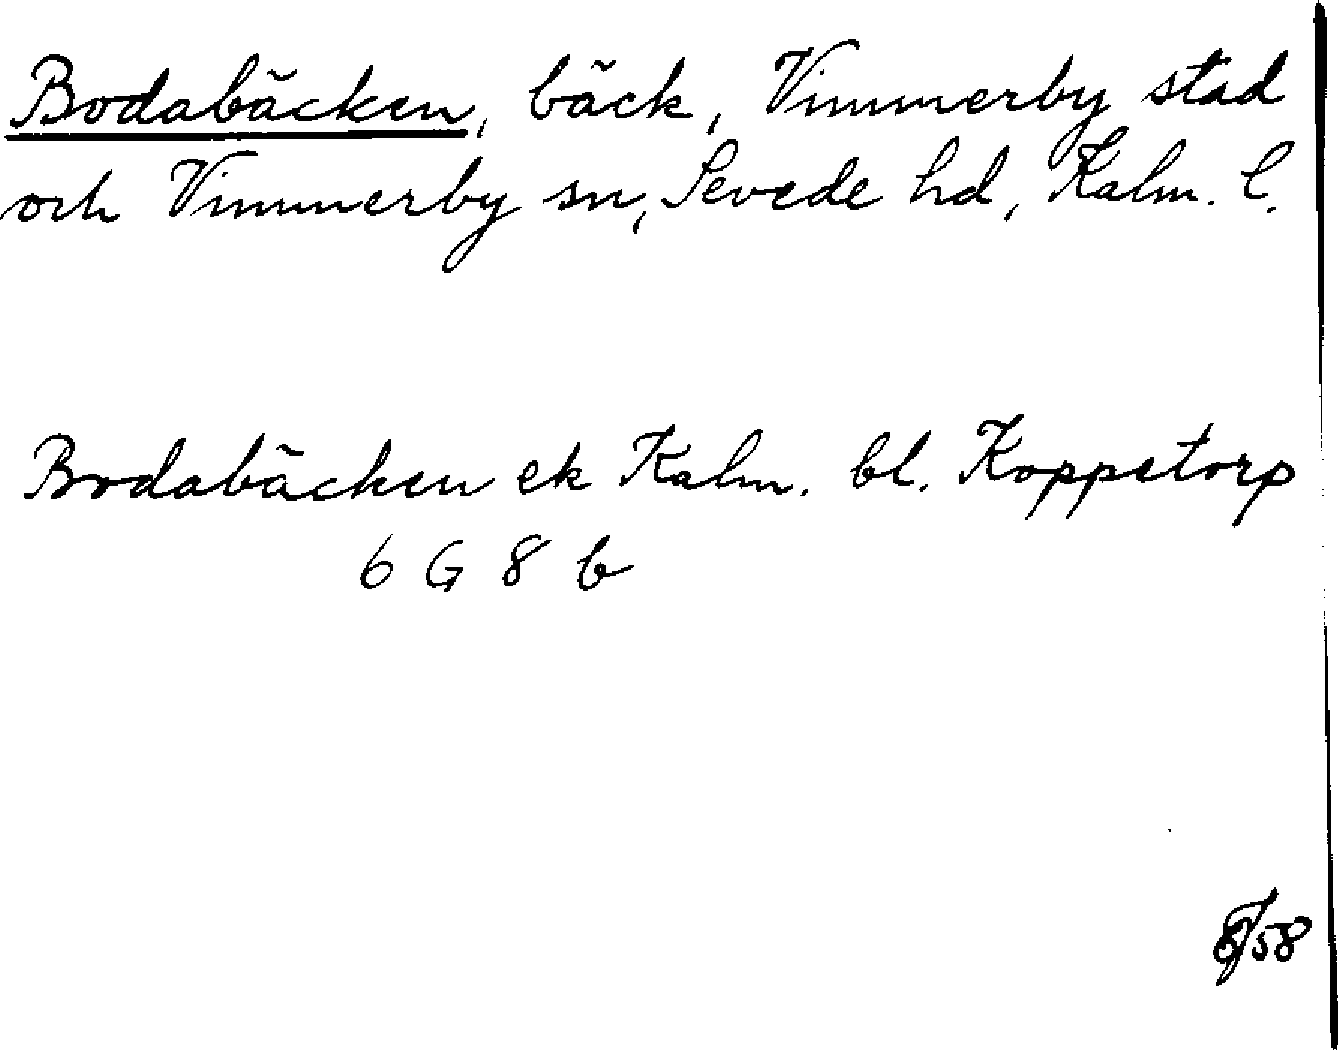 Bodabäcken, bäck, Vimmerby stad
och Vimmerby sn, Sevede hd, Kalm. l.
Bodabäcken ek Kalm. bl. Koppetorp
6 G 8 b